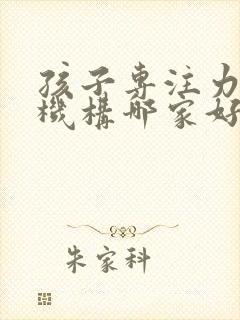 孩子專注力
機構哪家好
朱家科